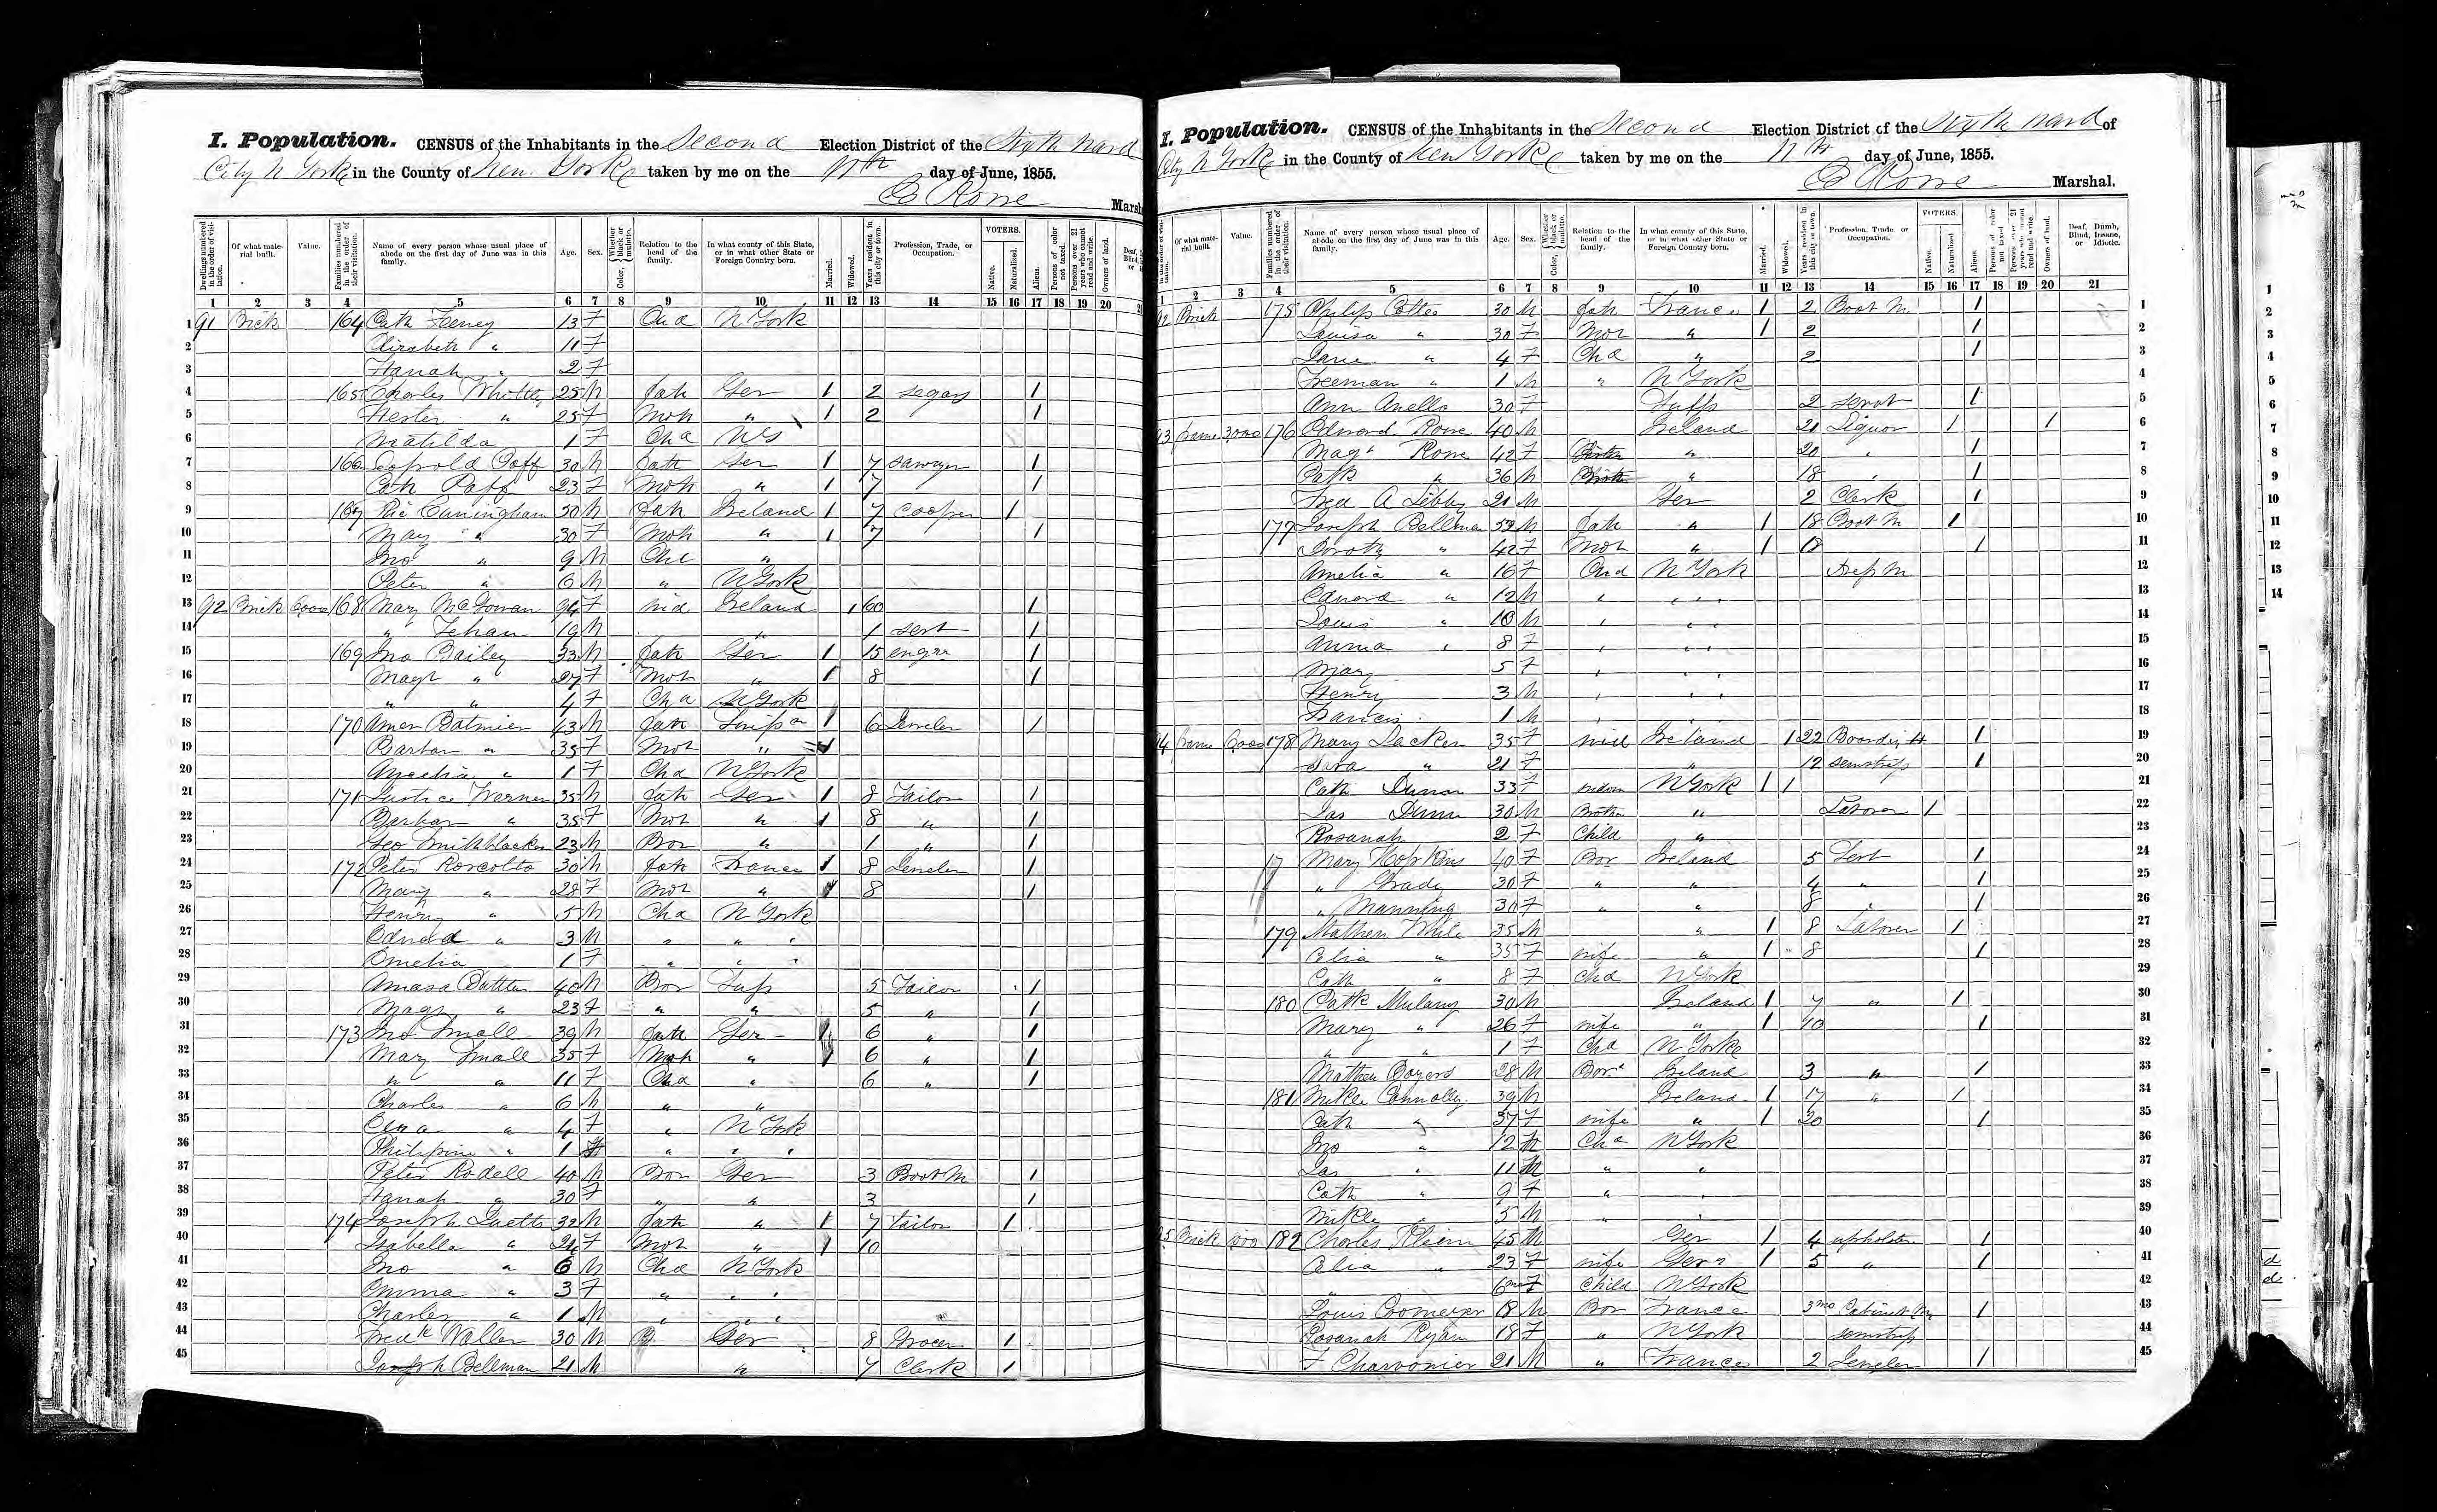 I. Population. CENSUS of the Inhabitants in the Second Election District of the Sixth Ward
City N York in the County of New York taken by me on the 11th day of June, 1855.
E Rowe Marsh
Dwellings numbered in the order of visitation. Of what material built. Value. Families numbered in the order of their visitation. Name of every person whose usual place of abode on the first day of June was in this family. Age. Sex. Color, Whether black or mulatto. Relation to the head of the family. In what county of this State, or in what other State or Foreign Country born. Married. Widowed. Years resident in this city or town. Profession, Trade, or Occupation. VOTERS. Native. Naturalized. Aliens. Persons of color not taxed. Persons over 21 years who cannot read and write. Owners of land. Deaf, Blind, or
1 2 3 4 5 6 7 8 9 10 11 12 13 14 15 16 17 18 19 20 21
1 91 Brick 164 Cath Feeney 13 F Chd N York
2 Elizabeth " 11 F
3 Hanah " 2 F
4 165 Charles 25 M Fath Ger 1 2 segars 1
5 Hester " 25 F Moth " 1 2 1
6 Matilda 1 F Chd NY
7 166 Leopold Paff 30 M Fath Ger 1 7 sawyer 1
8 Cath Paff 23 F Moth " 1 7 1
9 167 Cuningham 30 M Fath Ireland 1 7 Cooper 1
10 Mary " 30 F Moth " 1 7 1
11 Jno " 9 M Chd "
12 Peter " 6 M " N York
13 92 Brick 6000 168 Mary McGowan 94 F wid Ireland 1 60 1
14 " Tehan 19 M " 1 sert 1
15 169 Jno Bailey 33 M Fath Ger 1 15 engrr 1
16 Magt " 27 F Moth " 1 8 1
17 " " 4 F Chd N York
18 170 Amer Batmier 43 M Fath 1 6 Jeweler 1
19 Barbar " 35 F Moth " 1
20 Amelia " 1 F Chd N York
21 171 Justice Werner 35 M Fath Ger 1 8 Tailor 1
22 Barbar " 35 F Moth " 1 8 " 1
23 Geo 23 M Bor " 1 " 1
24 172 Peter Roscotto 30 M Fath France 1 8 Jeweler 1
25 Mary " 28 F Moth " 1 8 1
26 Henry " 5 M Chd N York
27 Edward " 3 M " " "
28 Emelia 1 F " " "
29 Amasa 40 M Bor 5 Tailor 1
30 Magt " 23 F " " 5 " 1
31 173 Jno Small 39 M Fath Ger 1 6 " 1
32 Mary Small 35 F Moth " 1 6 " 1
33 " " 11 F Chd " 6 " 1
34 Charles " 6 M " "
35 " 4 F " N York
36 Philipine " 1 " " "
37 Peter Rodell 40 M Bor Ger 3 Boot M 1
38 Hanah " 30 F " " 3 1
39 174 Joseph 32 M Fath " 1 7 Tailor 1
40 Isabella " 24 F Moth " 1 10
41 Jno " 6 M Chd N York
42 Emma " 3 F " " "
43 Charles " 1 M " " "
44 Fredk Waller 30 M B Ger 8 Grocer 1
45 Joseph Bellman 21 M " 7 Clerk 1
I. Population. CENSUS of the Inhabitants in the Second Election District of the Sixth Ward of
City N York in the County of New York taken by me on the 11th day of June, 1855.
E Rowe Marshal.
Of what material built. Value. Families numbered in the order of their visitation. Name of every person whose usual place of abode on the first day of June was in this family. Age. Sex. Color, Whether black or mulatto. Relation to the head of the family. In what county of this State, or in what other State or Foreign Country born. Married. Widowed. Years resident in this city or town. Profession, Trade or Occupation. VOTERS. Native. Naturalized. Aliens. Persons of color not taxed. Persons over 21 years who cannot read and write. Owners of land. Deaf, Dumb, Blind, Insane, or Idiotic.
1 2 3 4 5 6 7 8 9 10 11 12 13 14 15 16 17 18 19 20 21
92 Brick 175 Philip Coltes 30 M Fath France 1 2 Boot M 1 1
Louisa " 30 F Moth " 1 2 1 2
Jane " 4 F Chd " 2 1 3
Freeman " 1 M " N York 4
Ann Anello 30 F 2 servt 1 5
93 frame 3000 176 Edward Rowe 40 M Ireland 21 Liquor 1 1 6
Magt Rowe 42 F Sister " 20 " 1 7
Patk " 36 M Brother " 18 " 1 8
Fred A Libby 21 M Ger 2 Clerk 1 9
177 Joseph Bellman 52 M Fath " 1 18 Boot M 1 10
Doroth " 42 F Moth " 1 18 1 11
Amelia " 16 F Chd N York 12
Edward " 12 M " " " 13
Louis " 10 M " " " 14
Anna " 8 F " " " 15
Mary 5 F " " " 16
Henry 3 M " " " 17
Francis 1 M " 18
94 frame 6000 178 Mary Dacken 35 F wid Ireland 1 22 Boarding H 1 19
Sara " 21 F " 12 semstress 1 20
Cath Dunn 33 F widow N York 1 1 21
Jas Dunn 30 M Brother " Laborer 1 22
Rosanah 2 F Child " 23
17 Mary Hopkins 40 F Bor Ireland 5 Sert 1 24
" Grady 30 F " " 4 " 1 25
" Manning 30 F " " 8 " 1 26
179 Mathew White 35 M " 1 8 Laborer 1 27
Celia " 35 F wife " 1 8 1 28
Cath " 8 F Chd N York 29
180 Patk Mulany 30 M Ireland 1 7 " 1 30
Mary " 26 F wife " 1 10 1 31
" " 1 F Chd N York 32
Mathew Boyers 28 M Bor Ireland 3 " 1 33
181 Mikle Connolly 39 M Ireland 1 17 " 1 34
Cath " 37 F wife " 1 20 1 35
Jno " 12 M Chd N York 36
Jas " 11 M " " 37
Cath " 9 F " " 38
Mikle " 5 M " " 39
95 Brick 182 Charles Klein 45 M Ger 1 4 upholster 1 40
Celia " 23 F wife Ger 1 5 " 1 41
" 6mo F Child N York 42
Louis Coomeyer 18 M Bor France 3mo Cabinet M 1 43
Rosanah Ryan 18 F " N York semstress 44
F Charvonier 21 M " France 2 Jeweler 1 45
1
2
3
4
5
6
7
8
9
10
11
12
13
14